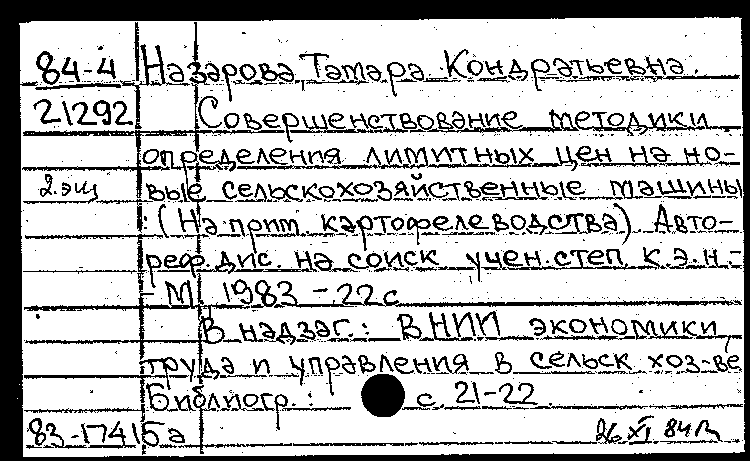 84-4 Назарова, Тамара Кондратьевна.
21292 Совершенствование методики
определения лимитных цен на но-
2 экз вые сельскохозяйственные машины
: (На прим. картофелеводства) Авто-
реф. дис. на соиск учен. степ. к.э.н.-
- М, 1983 - 22 с
В надзаг.: ВНИИ экономики,
труда и управления в сельск хоз-ве
Библиогр.: с. 21-22.
83-17415а 26 XI 84